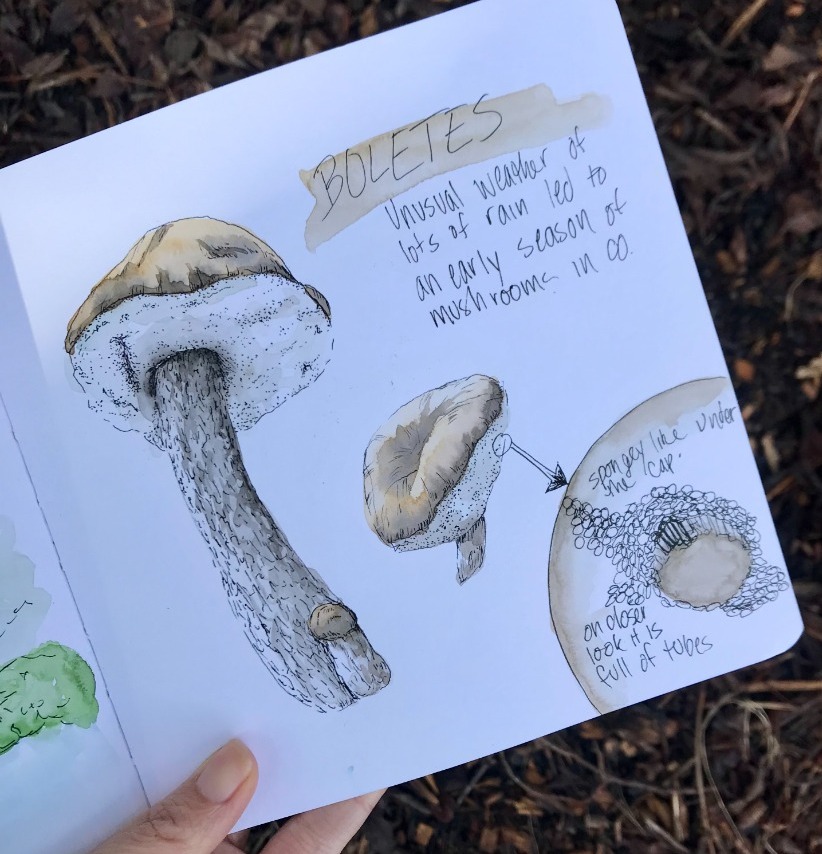 BOLETES
Unusual weather of
lots of rain led to
an early season of
mushrooms in CO.
spongey like under
the cap.
on closer
look it is
full of tubes